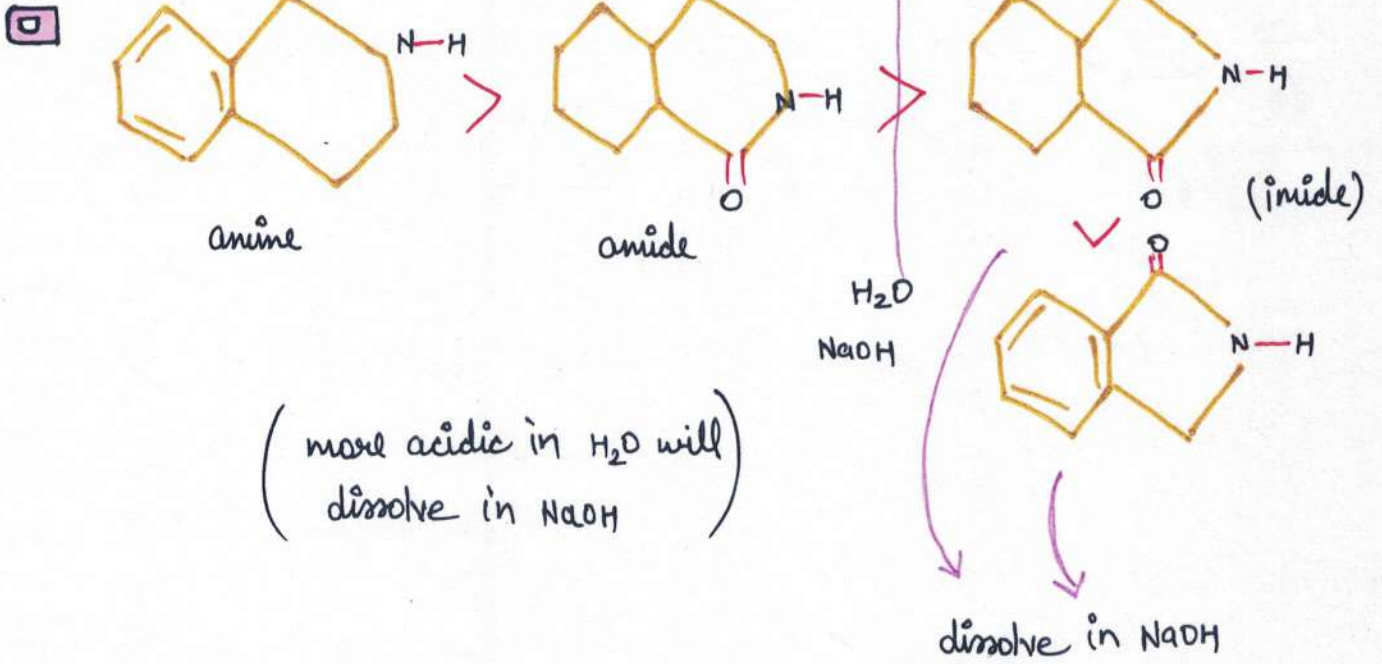 N—H > N—H > N—H
O O (imide)
amine amide
>
O
H₂O
NaOH N—H
(more acidic in H₂O will
dissolve in NaOH)
dissolve in NaOH